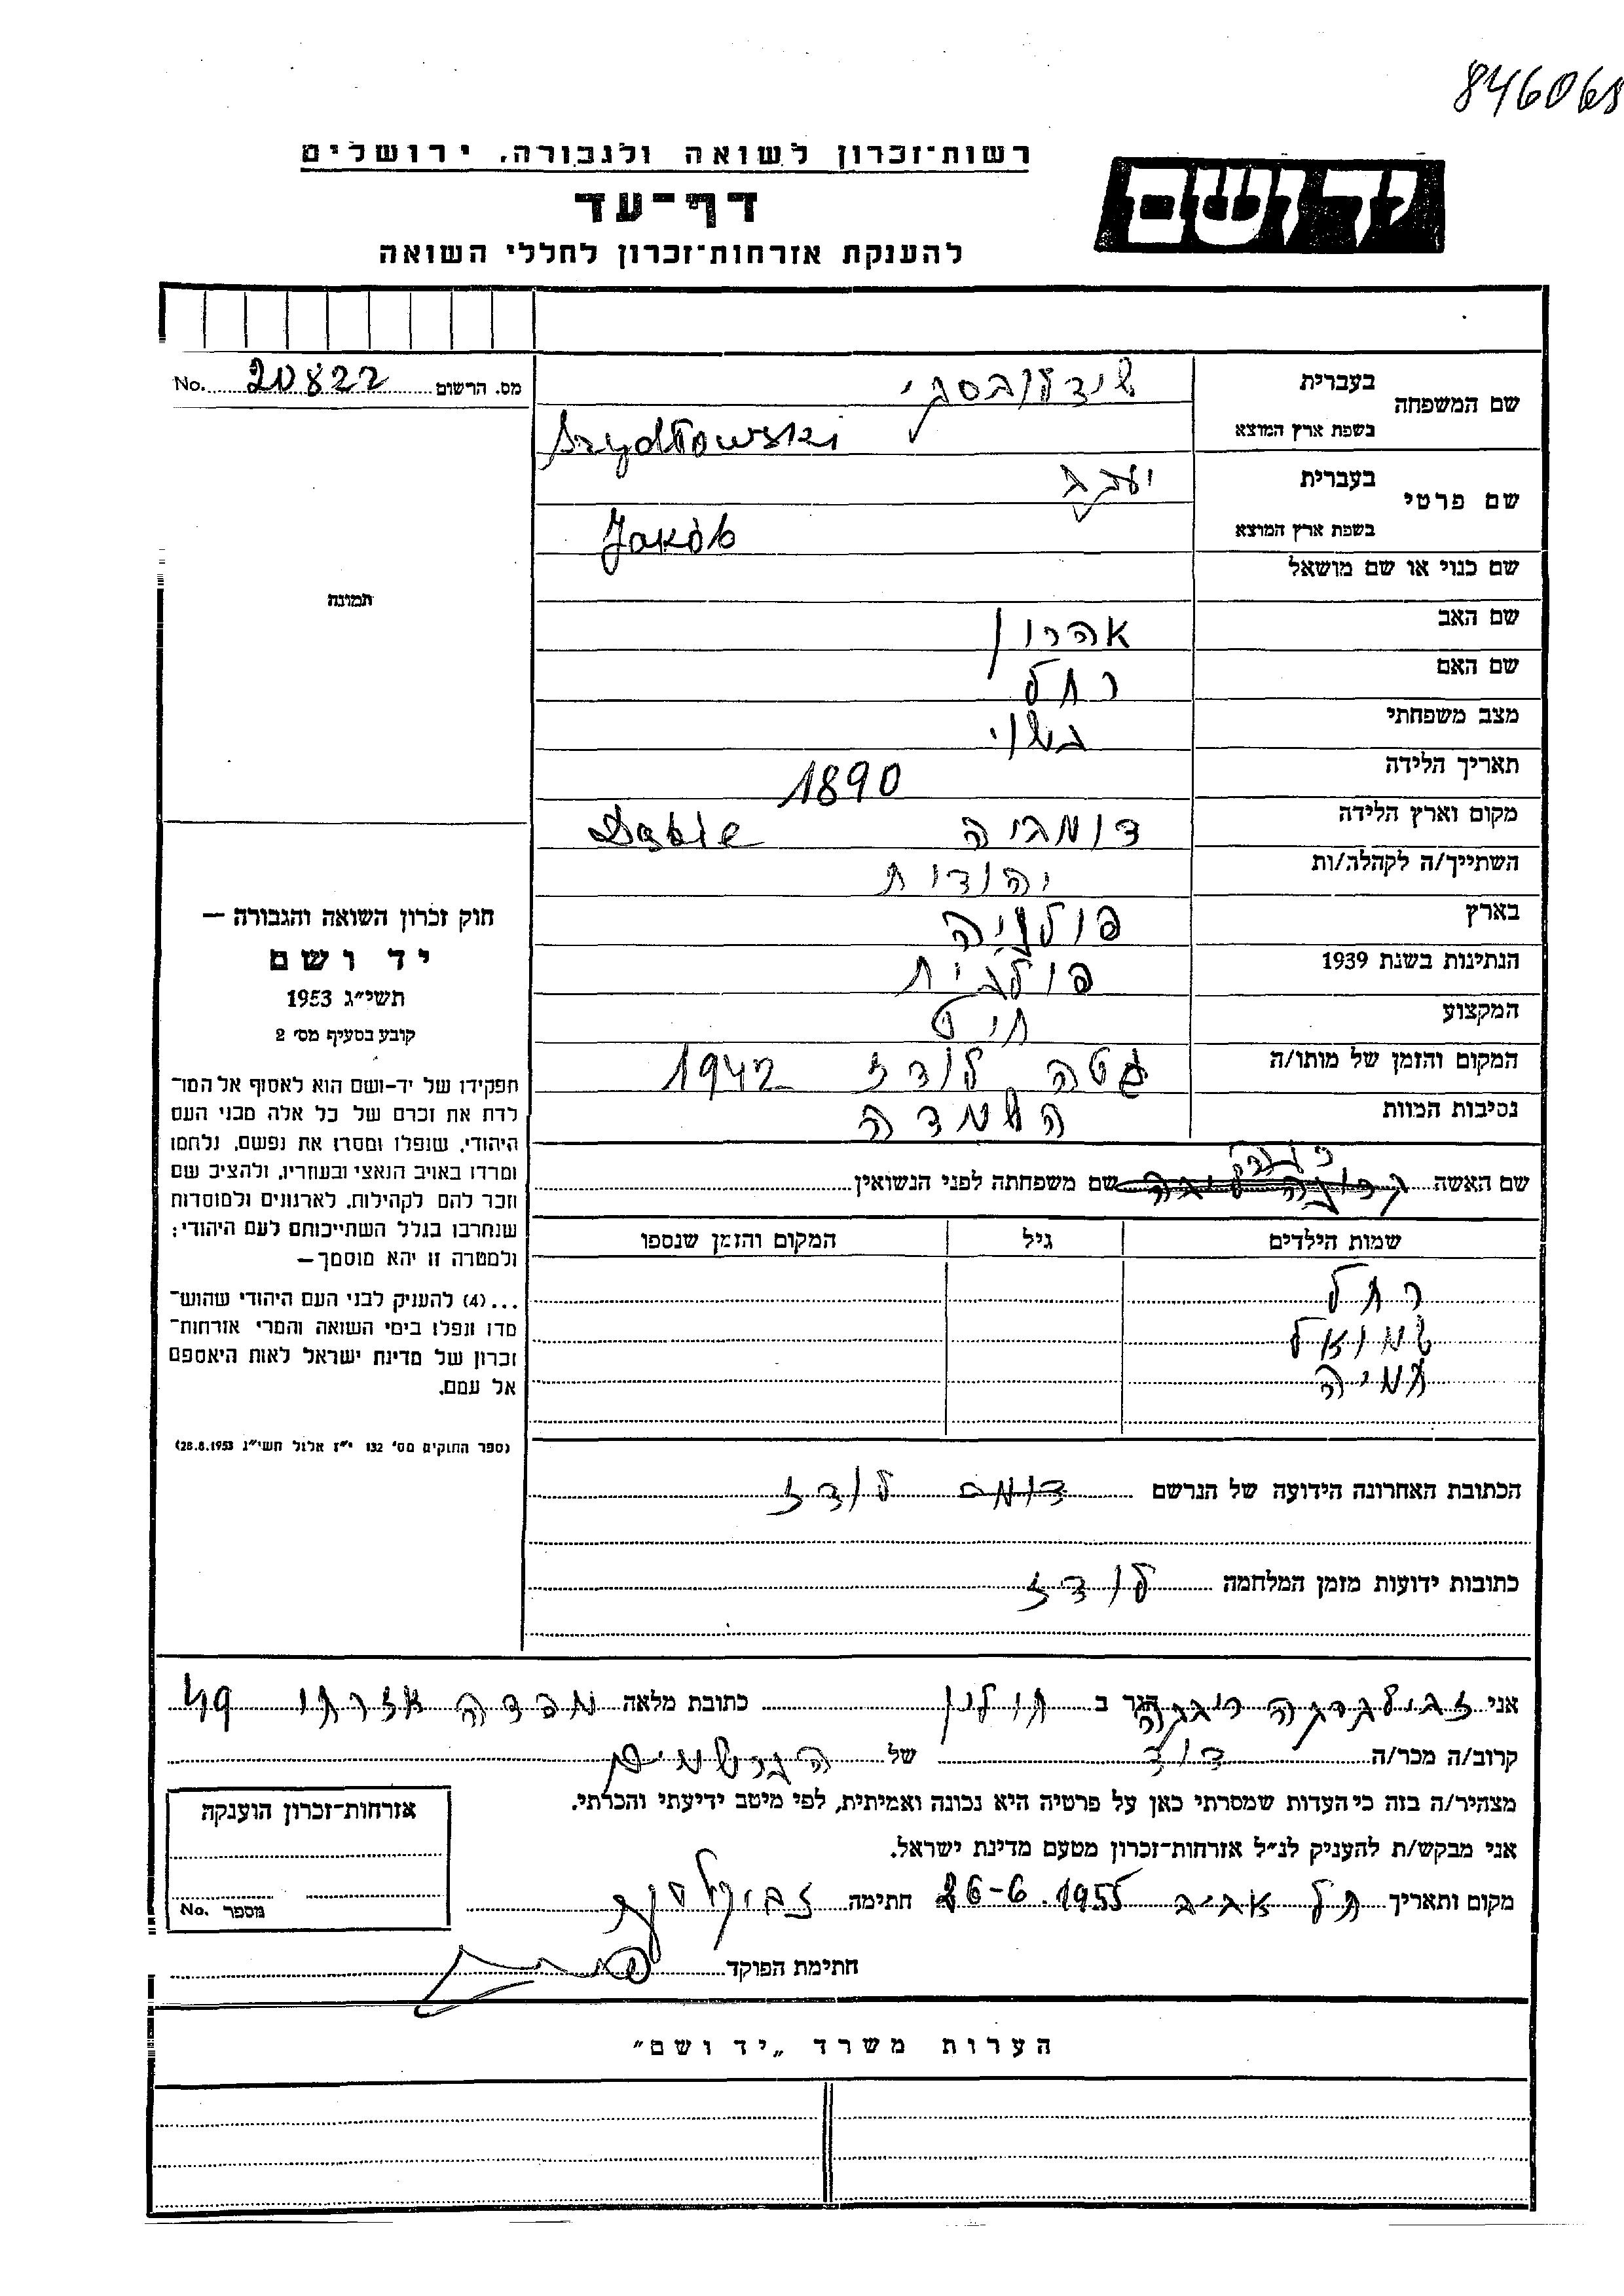 846068
רשות־זכרון לשואה ולגבורה, ירושלים
יד ושם
דף־עד
להענקת אזרחות־זכרון לחללי השואה
מס. הרשום 20822 No.
שם המשפחה
בעברית שידלובסקי
בשפת ארץ המוצא Szydłowski
שם פרטי
בעברית יעקב
בשפת ארץ המוצא Jakób
שם כנוי או שם מושאל
שם האב אהרון
שם האם רחל
מצב משפחתי נשוי
תאריך הלידה 1890
מקום וארץ הלידה דומביה Dąbie
השתייך/ה לקהלה/ות יהודית
בארץ פולניה
הנתינות בשנת 1939 פולנית
המקצוע חיט
המקום והזמן של מותו/ה גטה לודז 1942
נסיבות המוות השמדה
תמונה
חוק זכרון השואה והגבורה —
יד ושם
תשי״ג 1953
קובע בסעיף מס׳ 2
תפקידו של יד-ושם הוא לאסוף אל המו־
לדת את זכרם של כל אלה מבני העם
היהודי, שנפלו ומסרו את נפשם, נלחמו
ומרדו באויב הנאצי ובעוזריו, ולהציב שם
וזכר להם לקהילות, לארגונים ולמוסדות
שנחרבו בגלל השתייכותם לעם היהודי;
ולמטרה זו יהא מוסמך—
...(4) להעניק לבני העם היהודי שהוש־
מדו ונפלו בימי השואה והמרי אזרחות־
זכרון של מדינת ישראל לאות היאספם
אל עמם.
(ספר החוקים מס׳ 132 י״ז אלול תשי״ג 28.8.1953)
שם האשה שם משפחתה לפני הנשואין
שמות הילדים גיל המקום והזמן שנספו
רחל
שמואל
חמיה
הכתובת האחרונה הידועה של הנרשם לודז
כתובות ידועות מזמן המלחמה לודז
אני רבקה הגר ב חולון כתובת מלאה אזרחי 49
קרוב/ה מכר/ה דוד של הנרשמים
מצהיר/ה בזה כי העדות שמסרתי כאן על פרטיה היא נכונה ואמיתית, לפי מיטב ידיעתי והכרתי.
אני מבקש/ת להעניק לנ״ל אזרחות־זכרון מטעם מדינת ישראל.
מקום ותאריך תל אביב 26-6.1955 חתימה
חתימת הפוקד
אזרחות־זכרון הוענקה
מספר No.
הערות משרד „יד ושם״